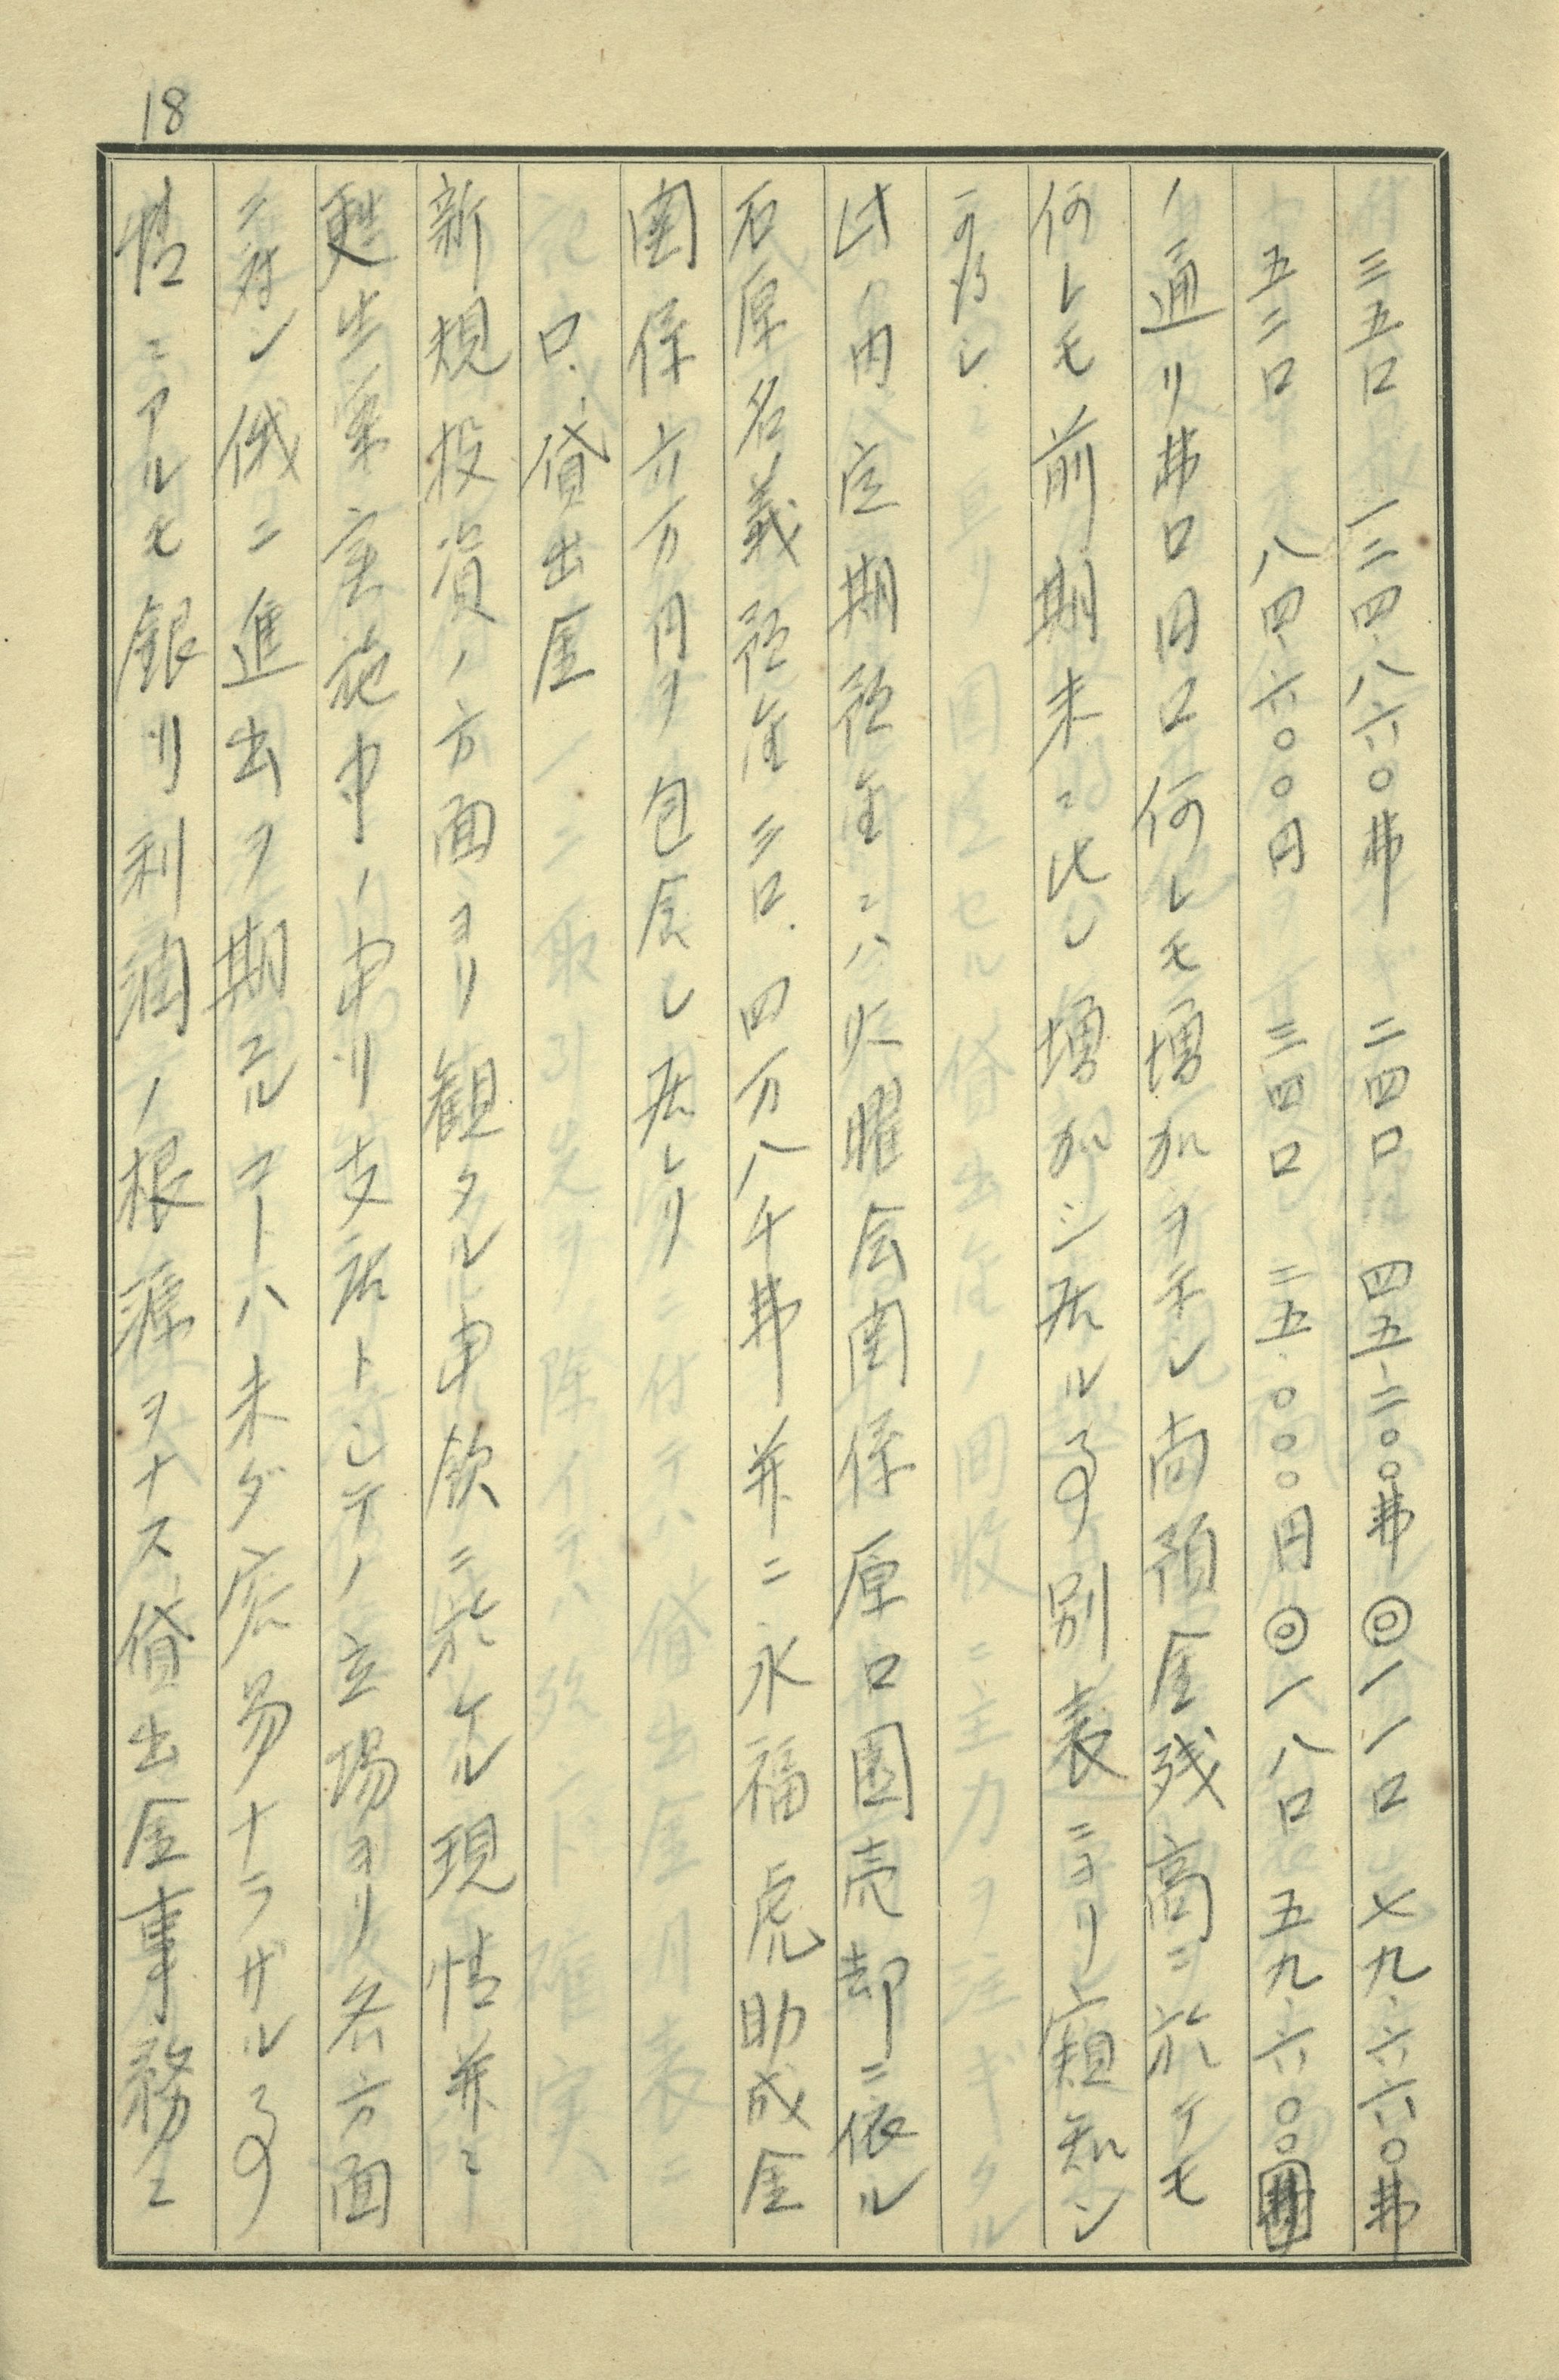 18
三五口　一三四、八六〇弗　二四口　四五、二〇〇弗◎一一口　七九、六六〇弗
五二口　八四、六〇〇円　三四口　二五、〇〇〇円◎一八口　五九、六〇〇円
ノ通リ弗口円口何レモ増加ヲ示シ尚預金残高ニ於テモ
何レモ前期末ニ比シ増加シ居ル事別表ニヨリ窺知シ
可得シ
此ノ内定期預金ニハ火曜会関係厚口園売却ニ依ル
石原名義預金三口、四万八千弗並ニ永福虎助成金
関係六万円ヲ包含シ居レリ
ロ、貸出金
新規投資ノ方面ヨリ観タル申欽ニ於ケル現情並ニ
更生案実施中ノ申リ支店トシテノ立場ヨリ各方面
ニ対シ俄ニ進出ヲ期スルコトハ未ダ容易ナラザル事
情ニアルモ銀リ利潤ノ根源ヲナス貸出金事務ニ